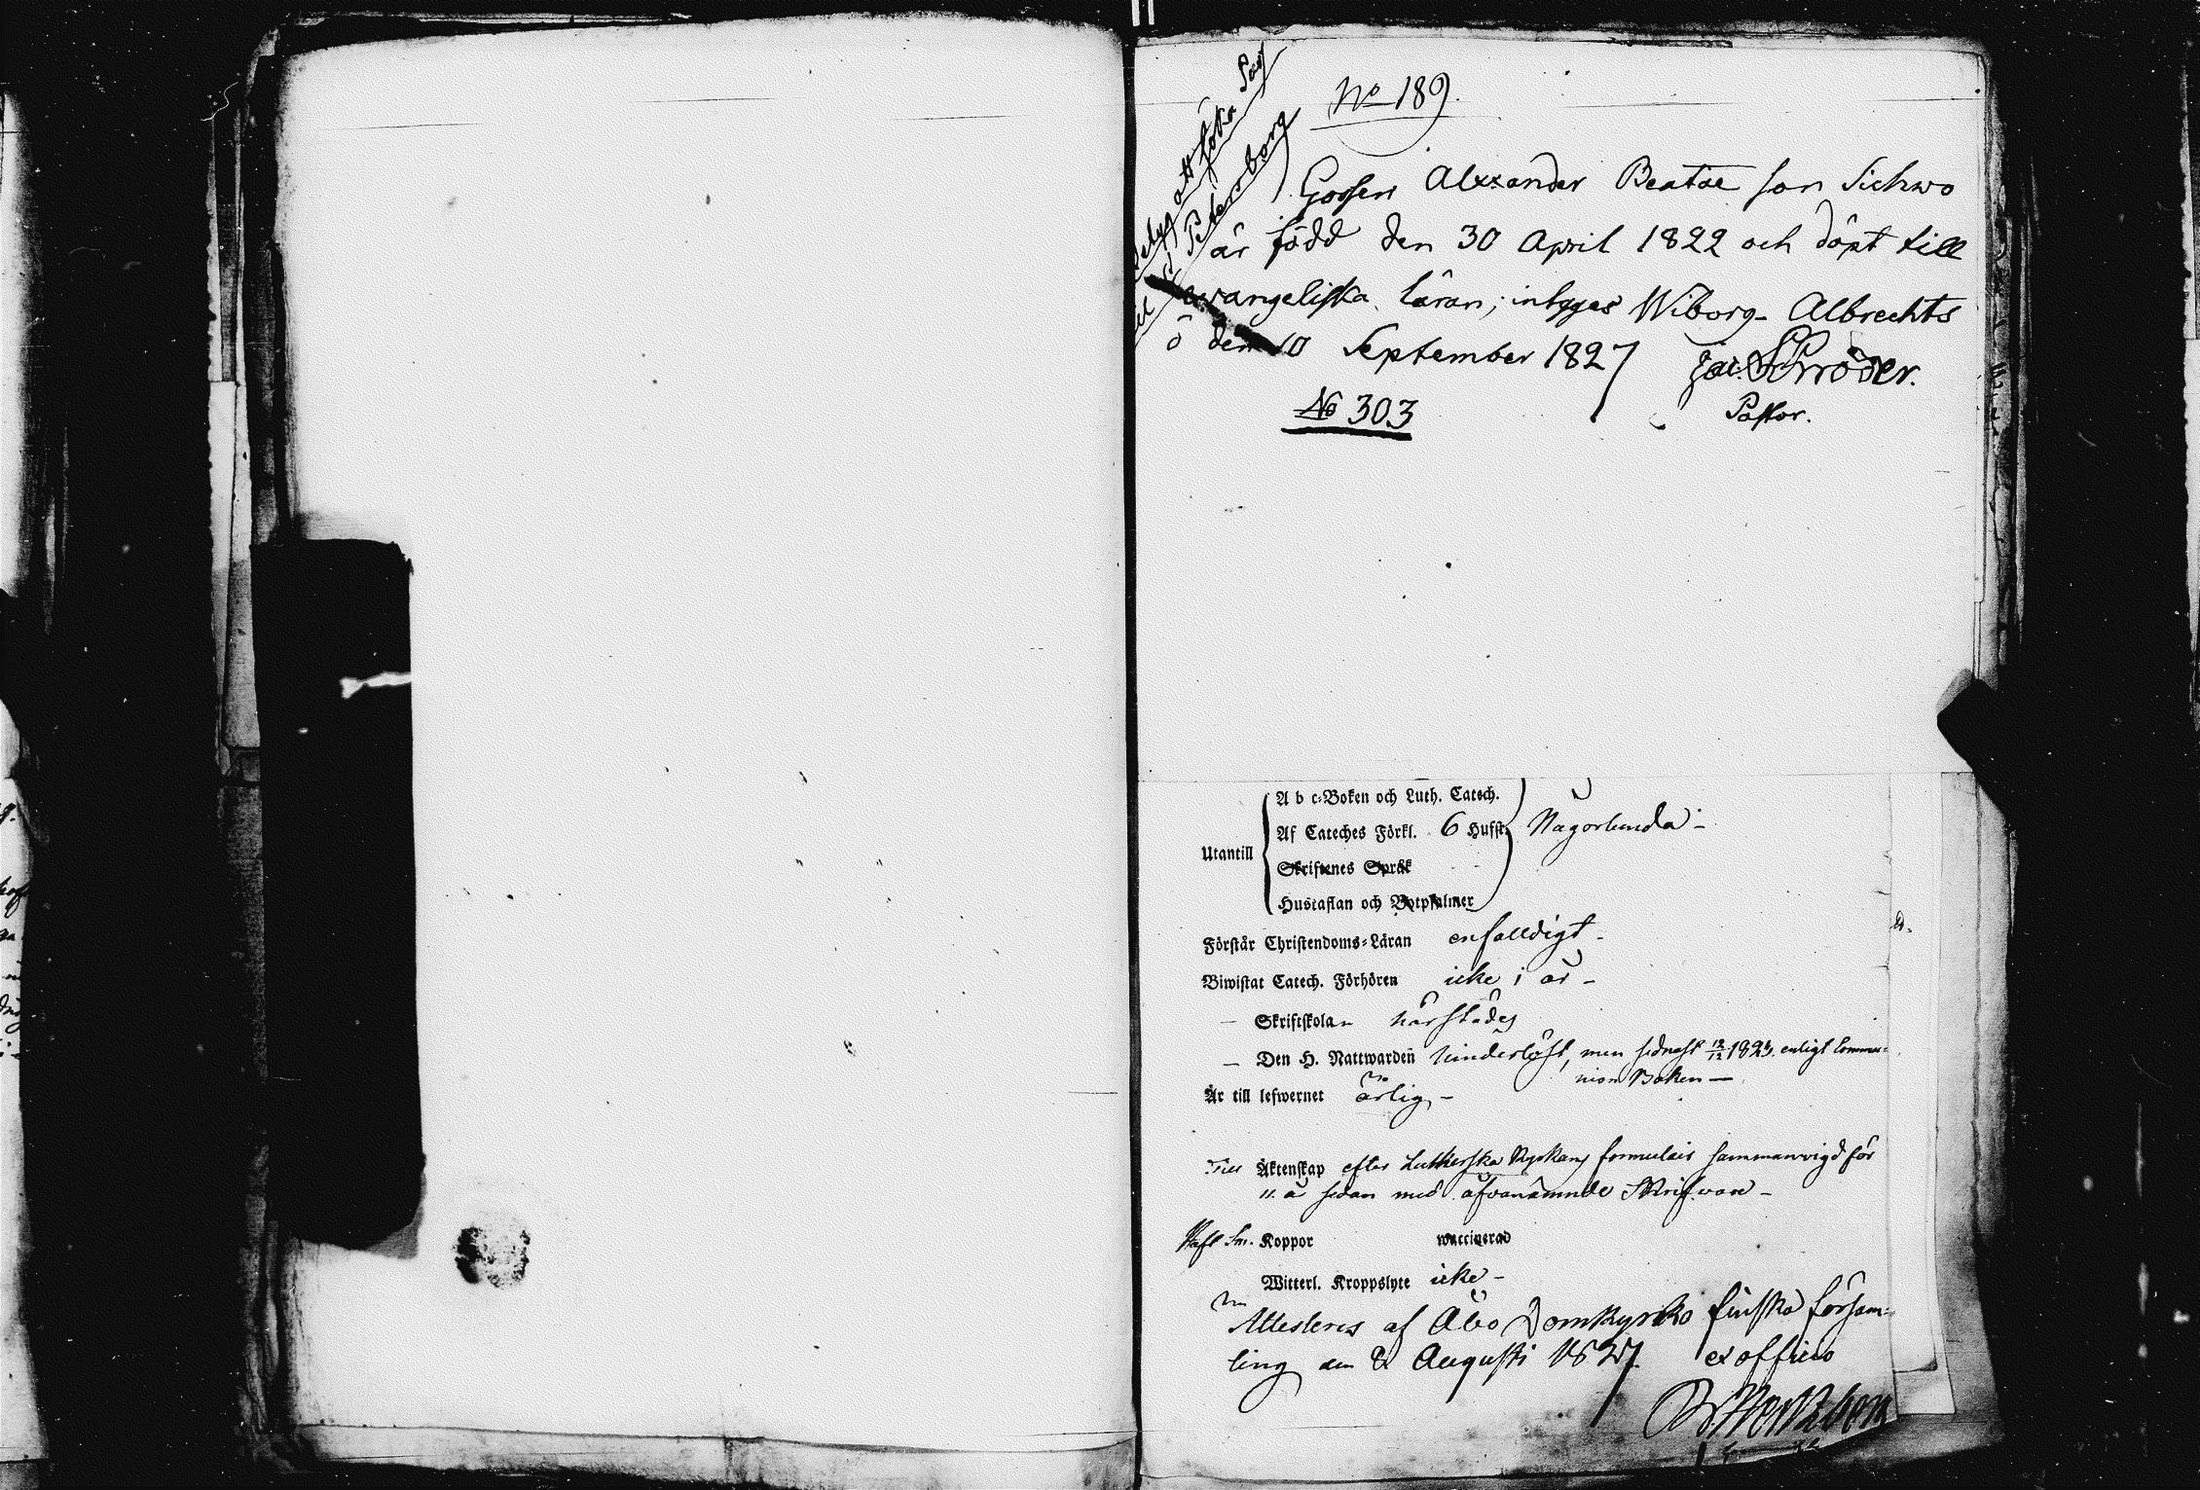 No 189.
att söka Pass
Petersborg
Gossen Alexander Beatae son Sichwo
är född den 30 April 1822 och döpt till
evangeliska läran; intyges Wiborg Albrechts
ö den 10 September 1827 Jac. Schröder.
No 303
Pastor.
Utantill
A b c-Boken och Luth. Catech.
Af Cateches Förkl. 6 Hufst. Någorlunda -
Skriftenes Språk
Hustaflan och Botpsalmer
Förstår Christendoms-Läran enfalldigt -
Biwistat Catech. Förhören icke i år -
— Skriftskolan härstädes
— Den H. Nattwarden hinderlöst, men sednast enligt Commu-
nion Boken —
Är till lefwernet ärlig, -
Till Äktenskap efter Lutherska Kyrkans formulair sammanvigd för
11 år sedan med ofvannämnde Skrifware -
Haft Sm. Koppor waccinerad
Witterl. Kroppslyte icke -
Attesteras af Åbo Domkyrko finska försam-
ling den Augusti 1827 ex officio